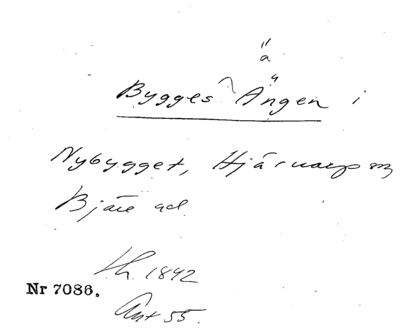 "
a
"
Bygges Ängen i
Nybygget, Hjärnarp sn
Bjäre hd
Lh. 1842
Nr 7086.
Ant 55.